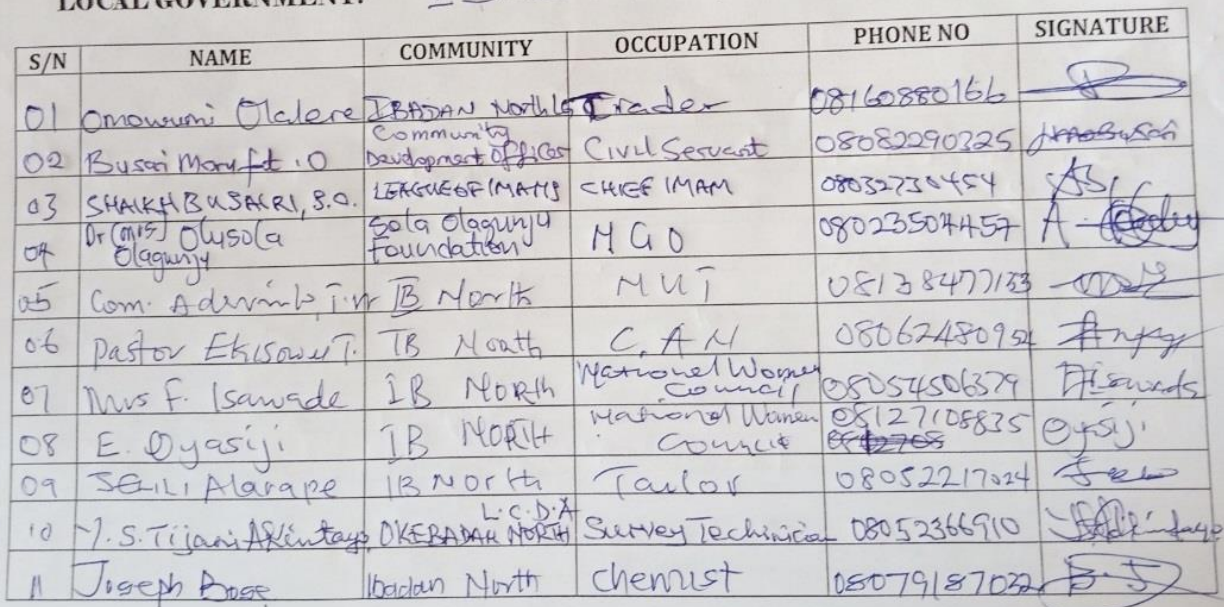 LOCAL GOVERNMENT:
S/N NAME COMMUNITY OCCUPATION PHONE NO SIGNATURE
01 Omowumi Olalere IBADAN North Trader 08160880166
02 Busari Moruft .O Community Development Officer Civil Servant 08082290325
03 SHAIKH BUSAIRI, S.O. LEAGUE OF IMAMS CHIEF IMAM 08032730454
04 Dr (Mrs) Olusola Olagunju Sola Olagunju Foundation NGO 08023504457
05 Com. IB North NUT 08138477133
06 Pastor IB North C.A.N 08062480954
07 Mrs F. Isawade IB North National Women Council 08054506379
08 E. Oyasiji IB NORTH National Women Council 08127108835 Oyasiji
09 Alarape IB North Tailor 08052217024
10 S. Tijani Akintayo L.C.D.A NORTH Survey Technician 08052366910
11 Joseph Bose Ibadan North Chemist 08079187032 B.J